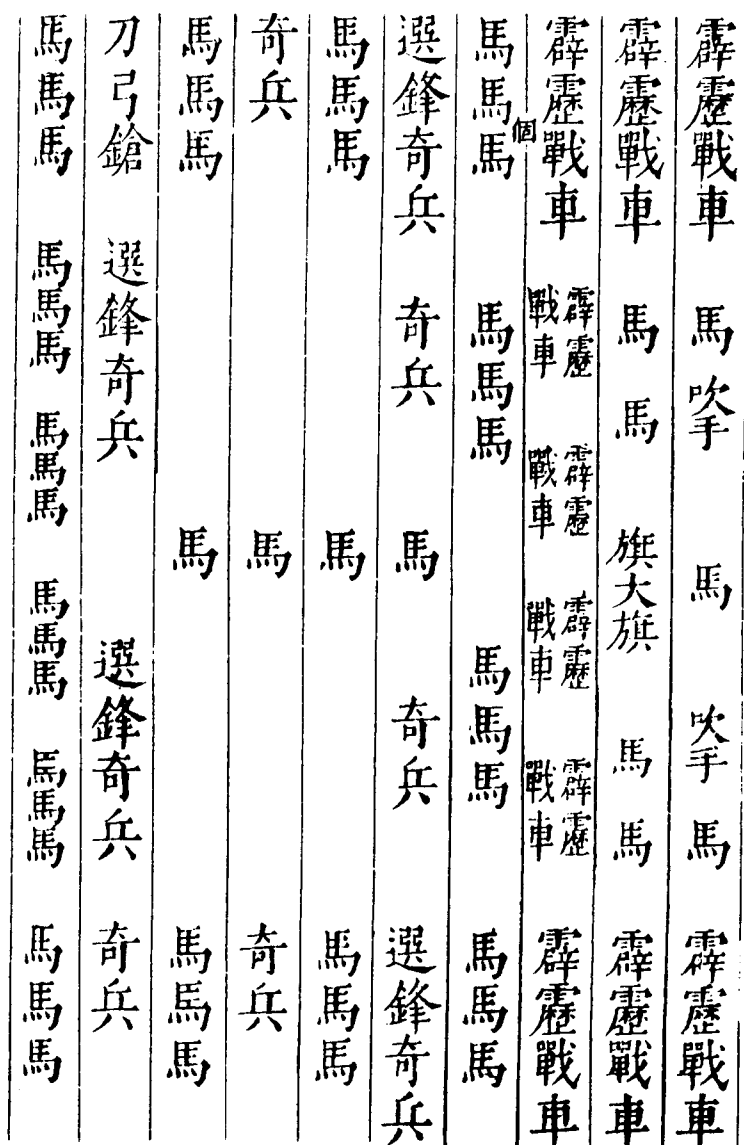 霹靂戰車 馬 吹手 馬 吹手 馬 霹靂戰車
霹靂戰車 馬 馬 旗大旗 馬 馬 霹靂戰車
霹靂戰車 霹靂戰車 霹靂戰車 霹靂戰車 霹靂戰車 霹靂戰車
個
馬馬馬 馬馬馬 馬馬馬 馬馬馬
選鋒奇兵 奇兵 馬 奇兵 選鋒奇兵
馬馬馬 馬 馬馬馬
奇兵 馬 奇兵
馬馬馬 馬 馬馬馬
刀弓鎗 選鋒奇兵 選鋒奇兵 奇兵
馬馬馬 馬馬馬 馬馬馬 馬馬馬 馬馬馬 馬馬馬